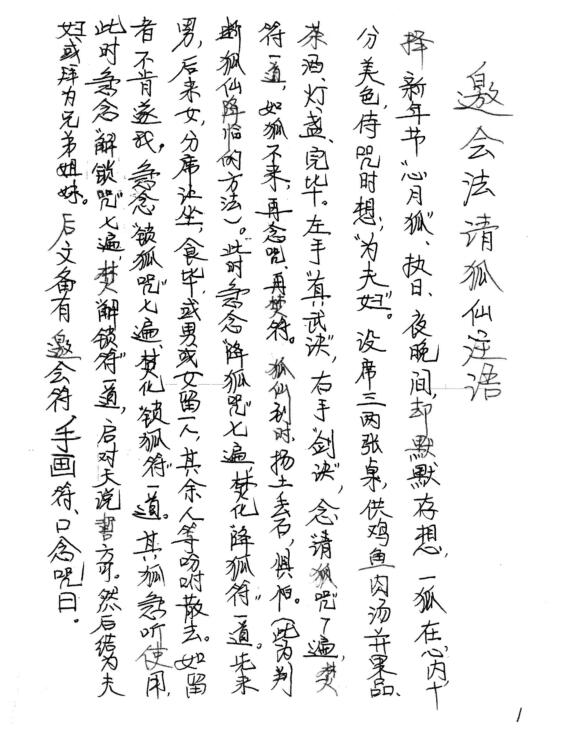 邀会法请狐仙注语
择新年节"心月狐"、执日、夜晚间,却默默存想,一狐在心内十
分美色,侍咒时想:"为夫妇"。设席三两张桌,供鸡鱼肉汤并果品、
茶酒、灯、盏、完毕。左手"真武诀",右手"剑诀",念请狐咒了遍,焚
符一道,如狐不来,再念咒、再焚符。狐仙到时,扬土丢石,惧怕。(此为判
断狐仙降临的方法)。此时急念"降狐咒"七遍,焚化"降狐符"一道。先来
男,后来女,分席让坐,食毕,或男或女留一人,其余人等吩咐散去。如留
者不肯遂我,急念"锁狐咒"七遍、焚化"锁狐符"一道。其狐急听使用,
此时急念"解锁咒"七遍,焚"解锁符"一道,启对天说誓方可。然后结为夫
妇或拜为兄弟姐妹。后文备有邀会符,手画符、口念咒曰。
1